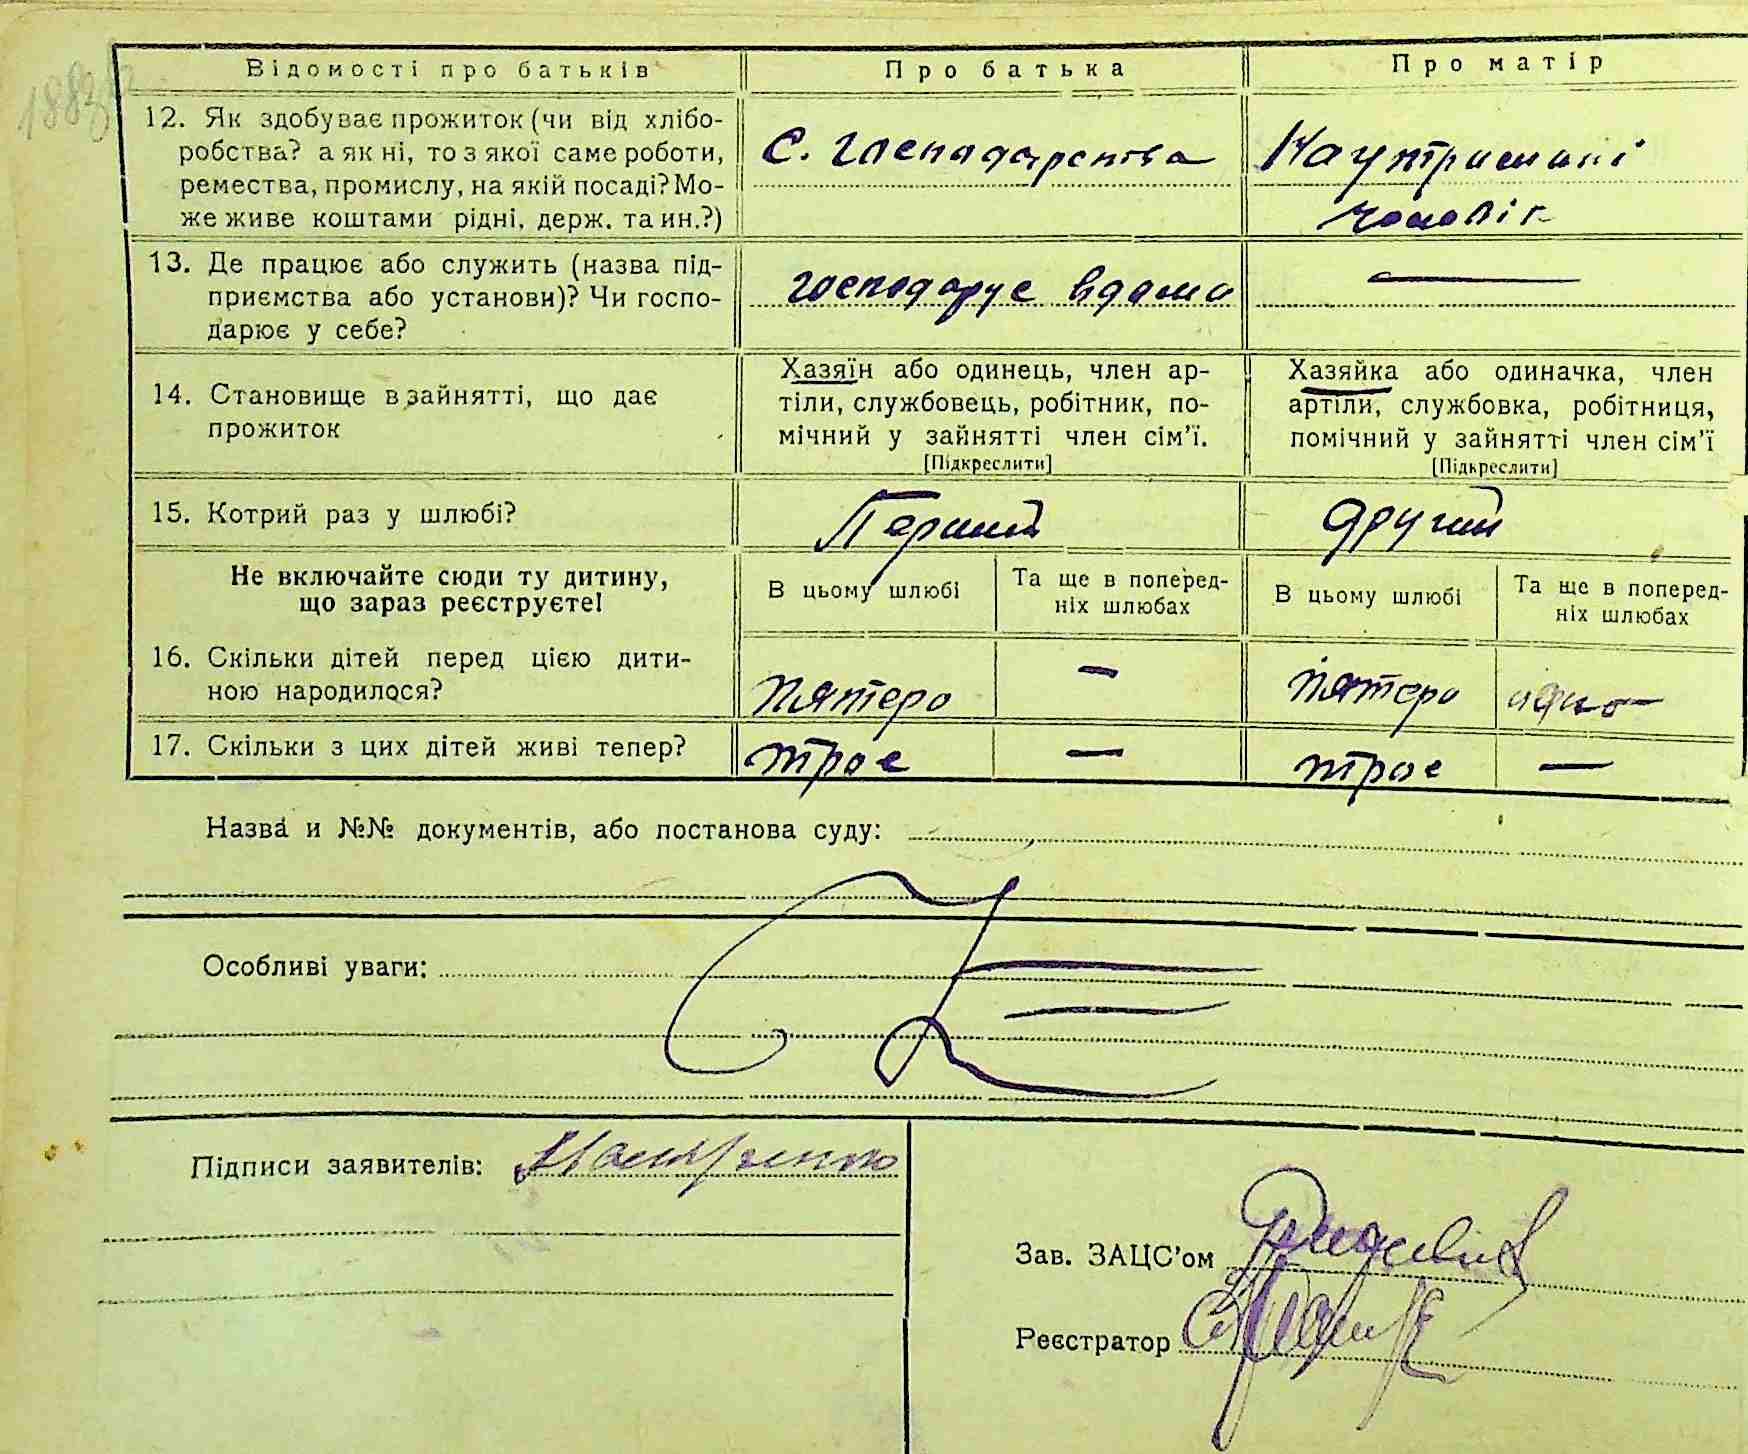 Відомості про батьків
Про батька
Про матір
12. Як здобуває прожиток (чи від хлібо-
робства? а як ні, то з якої саме роботи,
ремества, промислу, на якій посаді? Мо-
же живе коштами рідні, держ. та ин.?)
С. господарства
На утриманні
чоловік
13. Де працює або служить (назва під-
приємства або установи)? Чи госпо-
дарює у себе?
господарує вдома
—
14. Становище в зайнятті, що дає
прожиток
Хазяїн або одинець, член ар-
тіли, службовець, робітник, по-
мічний у зайнятті член сім’ї.
[Підкреслити]
Хазяйка або одиначка, член
артіли, службовка, робітниця,
помічний у зайнятті член сім’ї
[Підкреслити]
15. Котрий раз у шлюбі?
Перший
другий
Не включайте сюди ту дитину,
що зараз реєструєте!
В цьому шлюбі
Та ще в поперед-
ніх шлюбах
В цьому шлюбі
Та ще в поперед-
ніх шлюбах
16. Скільки дітей перед цією дити-
ною народилося?
пятеро
—
пятеро
одно
17. Скільки з цих дітей живі тепер?
трое
—
трое
—
Назва и №№ документів, або постанова суду:
Особливі уваги:
Підписи заявителів:
Зав. ЗАЦС’ом
Реєстратор